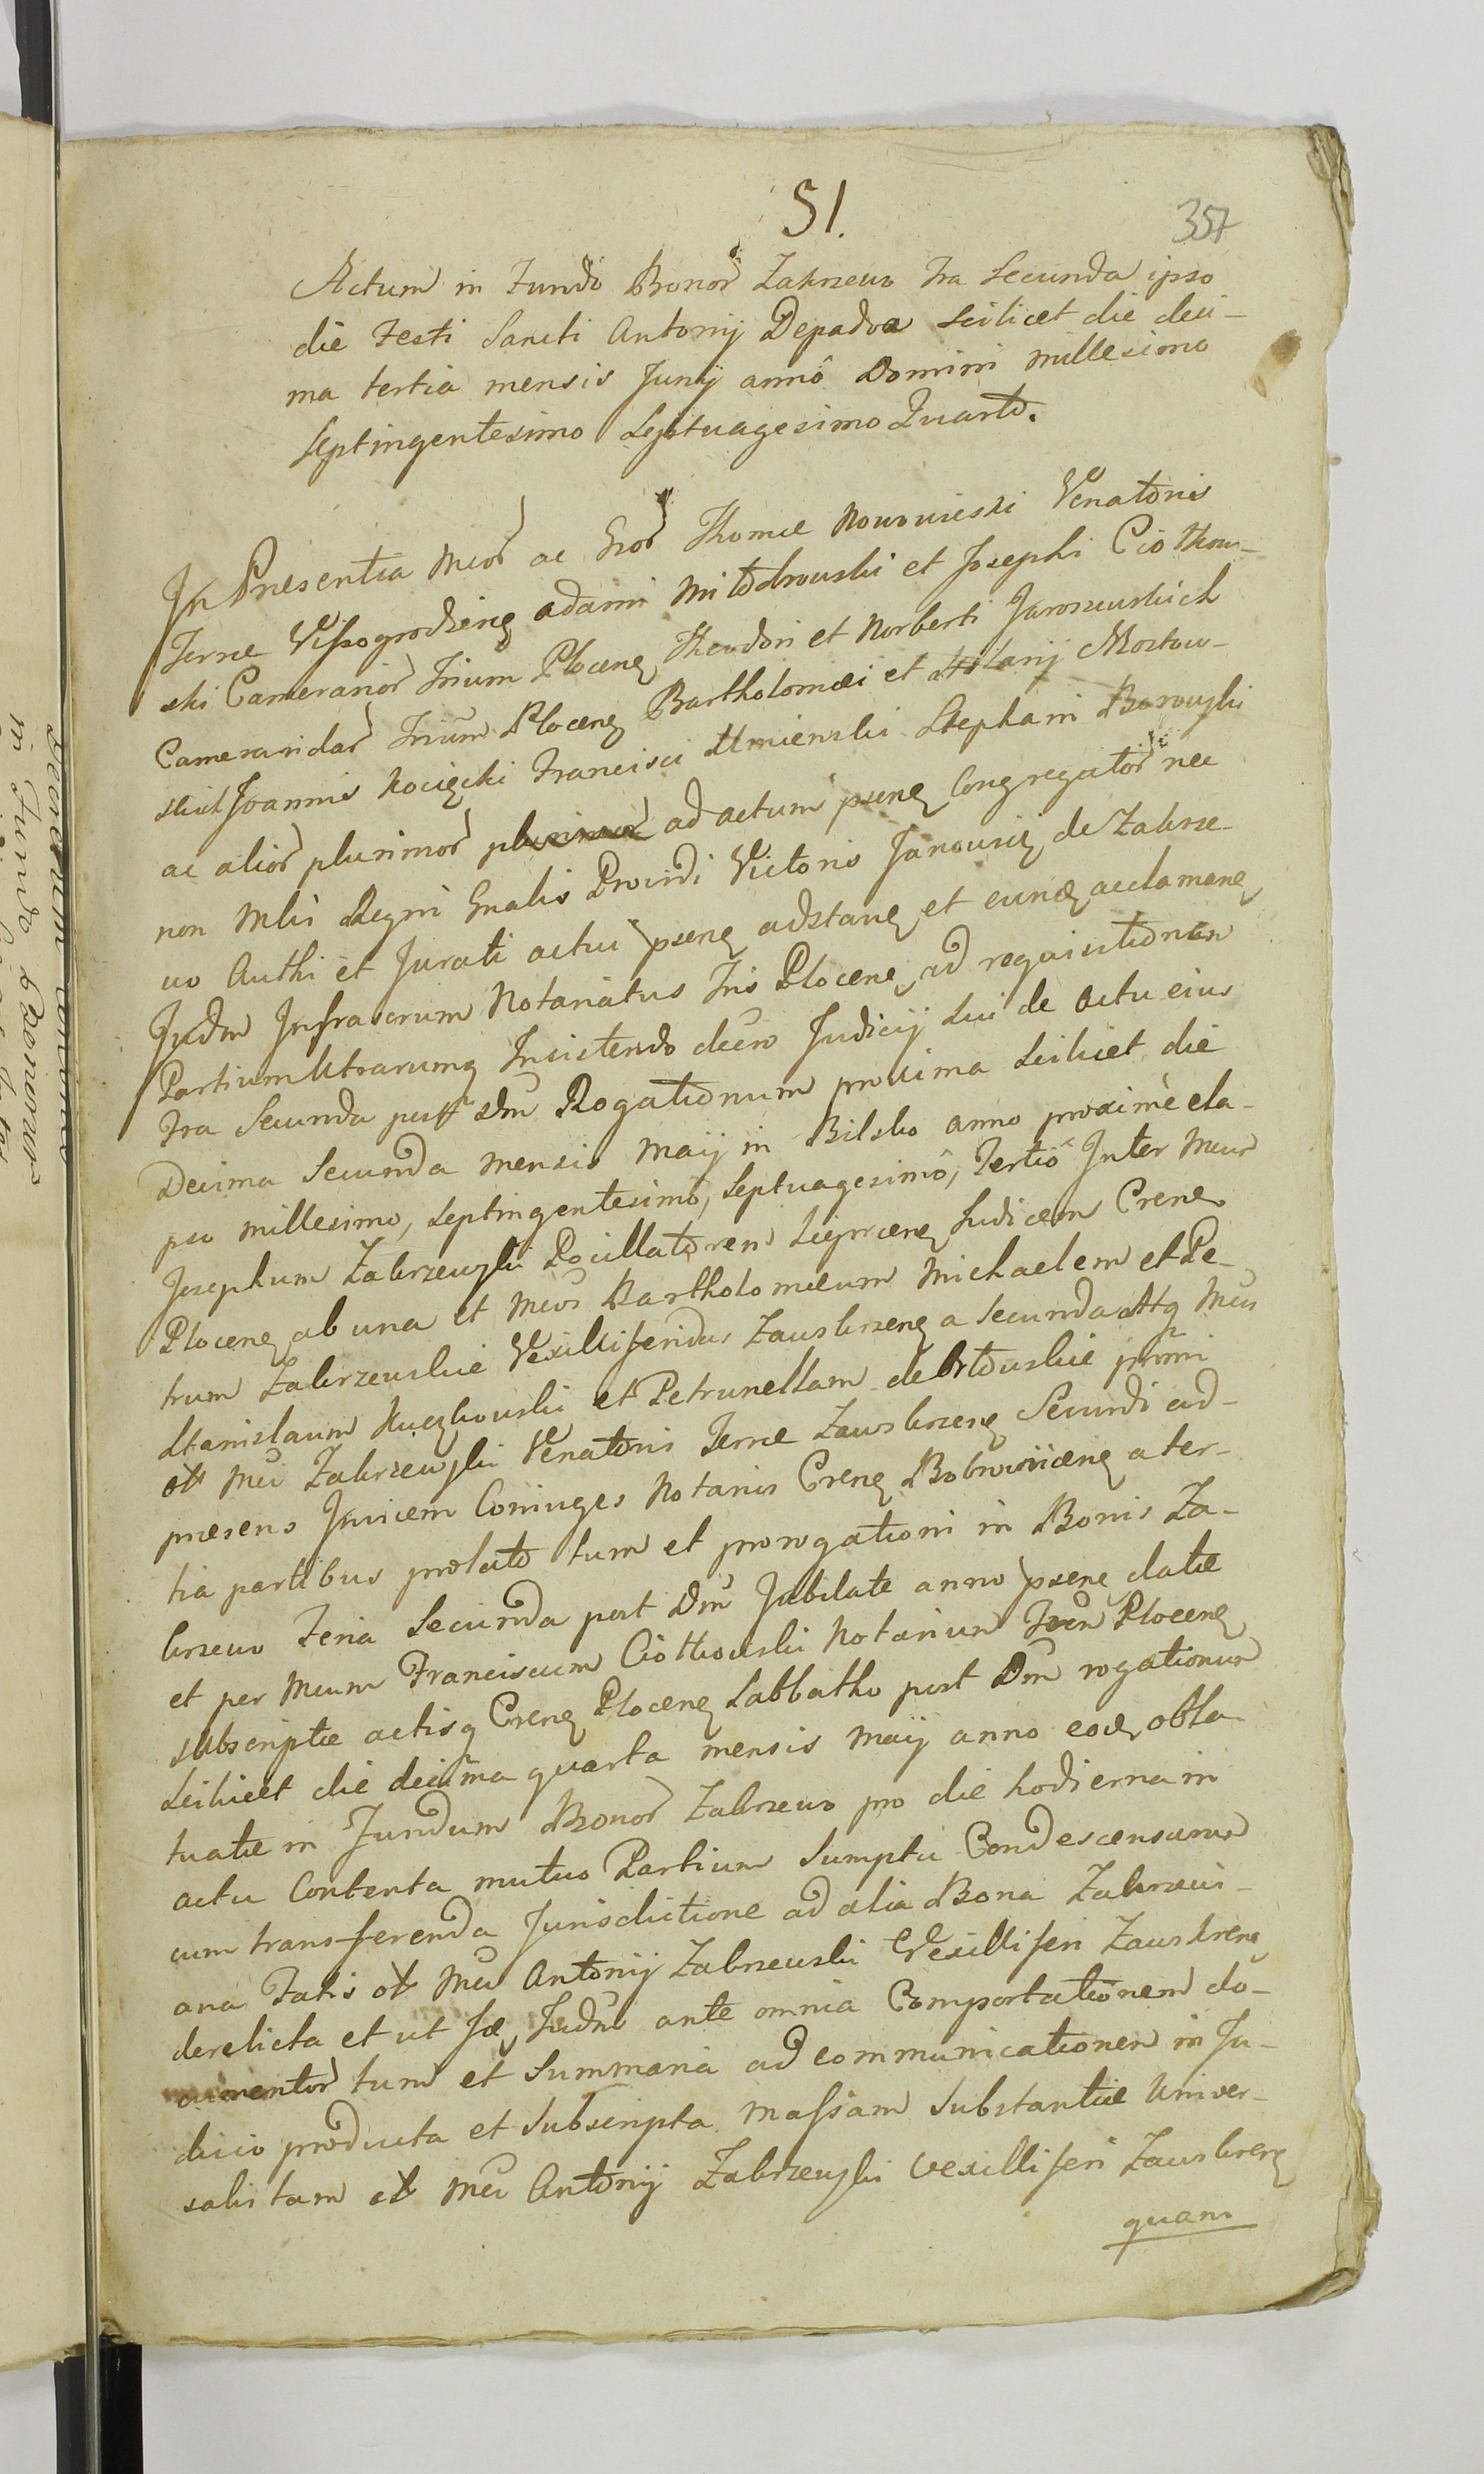 51.
357
Actum in Fundo Bonor Zakrzewo Fra Secunda ipso
die Festi Sancti Antonij Depadua scilicet die deci-
ma tertia mensis Junij annô Domini millesimo
septingentesimo Septuagesimo Quarto.
In Presentia Mcor ac Gror Thomæ Nowowieski Venatoris
Terræ Vissogrodzieng adami Milodrowski et Josephi Ciołkow-
ski Camerarior Trium Plocens Theudori et Norberti Jaroszewskich
Cameraridar Trium Plocens Bartholomæi et Hilarij Mostow-
skich Joannis Kocięcki Francisci Umienski Stephani Borowski
ac alior plurimor ad actum psens Congregator nec
non Mlis Regni Gnalis Providi Victoris Janowicz de Zakrze-
wo Authi et Jurati actui psens adstans et eund acclamans
Judm Infrascrum Notariatus Tris Plocens ad requisitionem
Partium Utrarumq Insistendo decro Judicij sui de actu eius
Fra Secunda post Dm Rogationum proxima scilicet die
Decima Secunda mensis Maij in Bilsko anno proximè ela-
pso millesimo, septingentesimô, septuagesimô, Tertiô Inter Mcum
Josephum Zakrzewski Pocillatorem Sieprcens Judicem Crens
Plocens ab una et Mcos Bartholomæum Michaelem et Pe-
trum Zakrzewskie Vexilliferidas Zawskrzens a Secunda Attq Mcos
Stanislaum Kuczkowski et Petrunellam primi
olt Mci Zakrzewski Venatoris Terræ Zawskrzens Secundi ad-
præsens Invicem Coniuges Notarios Crens Bobrowicens a ter-
tia partibus prolato tum et prorogationi in Bonis Za-
krzewo Feria Secunda post Dm Jubilate anno psens datæ
et per Mcum Franciscum Ciołkowski Notarium Plocens
subscriptæ actisq Crens Plocens Sabbatho post Dm rogationum
scilicet die decima quarta mensis Maij anno eod obla-
tuatæ in Fundum Bonor Zakrzewo pro die hodierna in
actu Contenta mutuo Partium Sumptu Condescensurum
cum transferenda Jurisdictione ad alia Bona Zakrzewi-
ana Fatis olt Mci Antonij Zakrzewski Vexilliferi Zawskrens
derelicta et ut ante omnia Comportationem do-
cumentor tum et Summaria ad communicationem in Ju-
dicio producta et Subscripta massam substantiæ Univer-
salis tam olt Mci Antonij Zakrzewski Vexilliferi Zawskrens
quam
in Fundo Bonorum